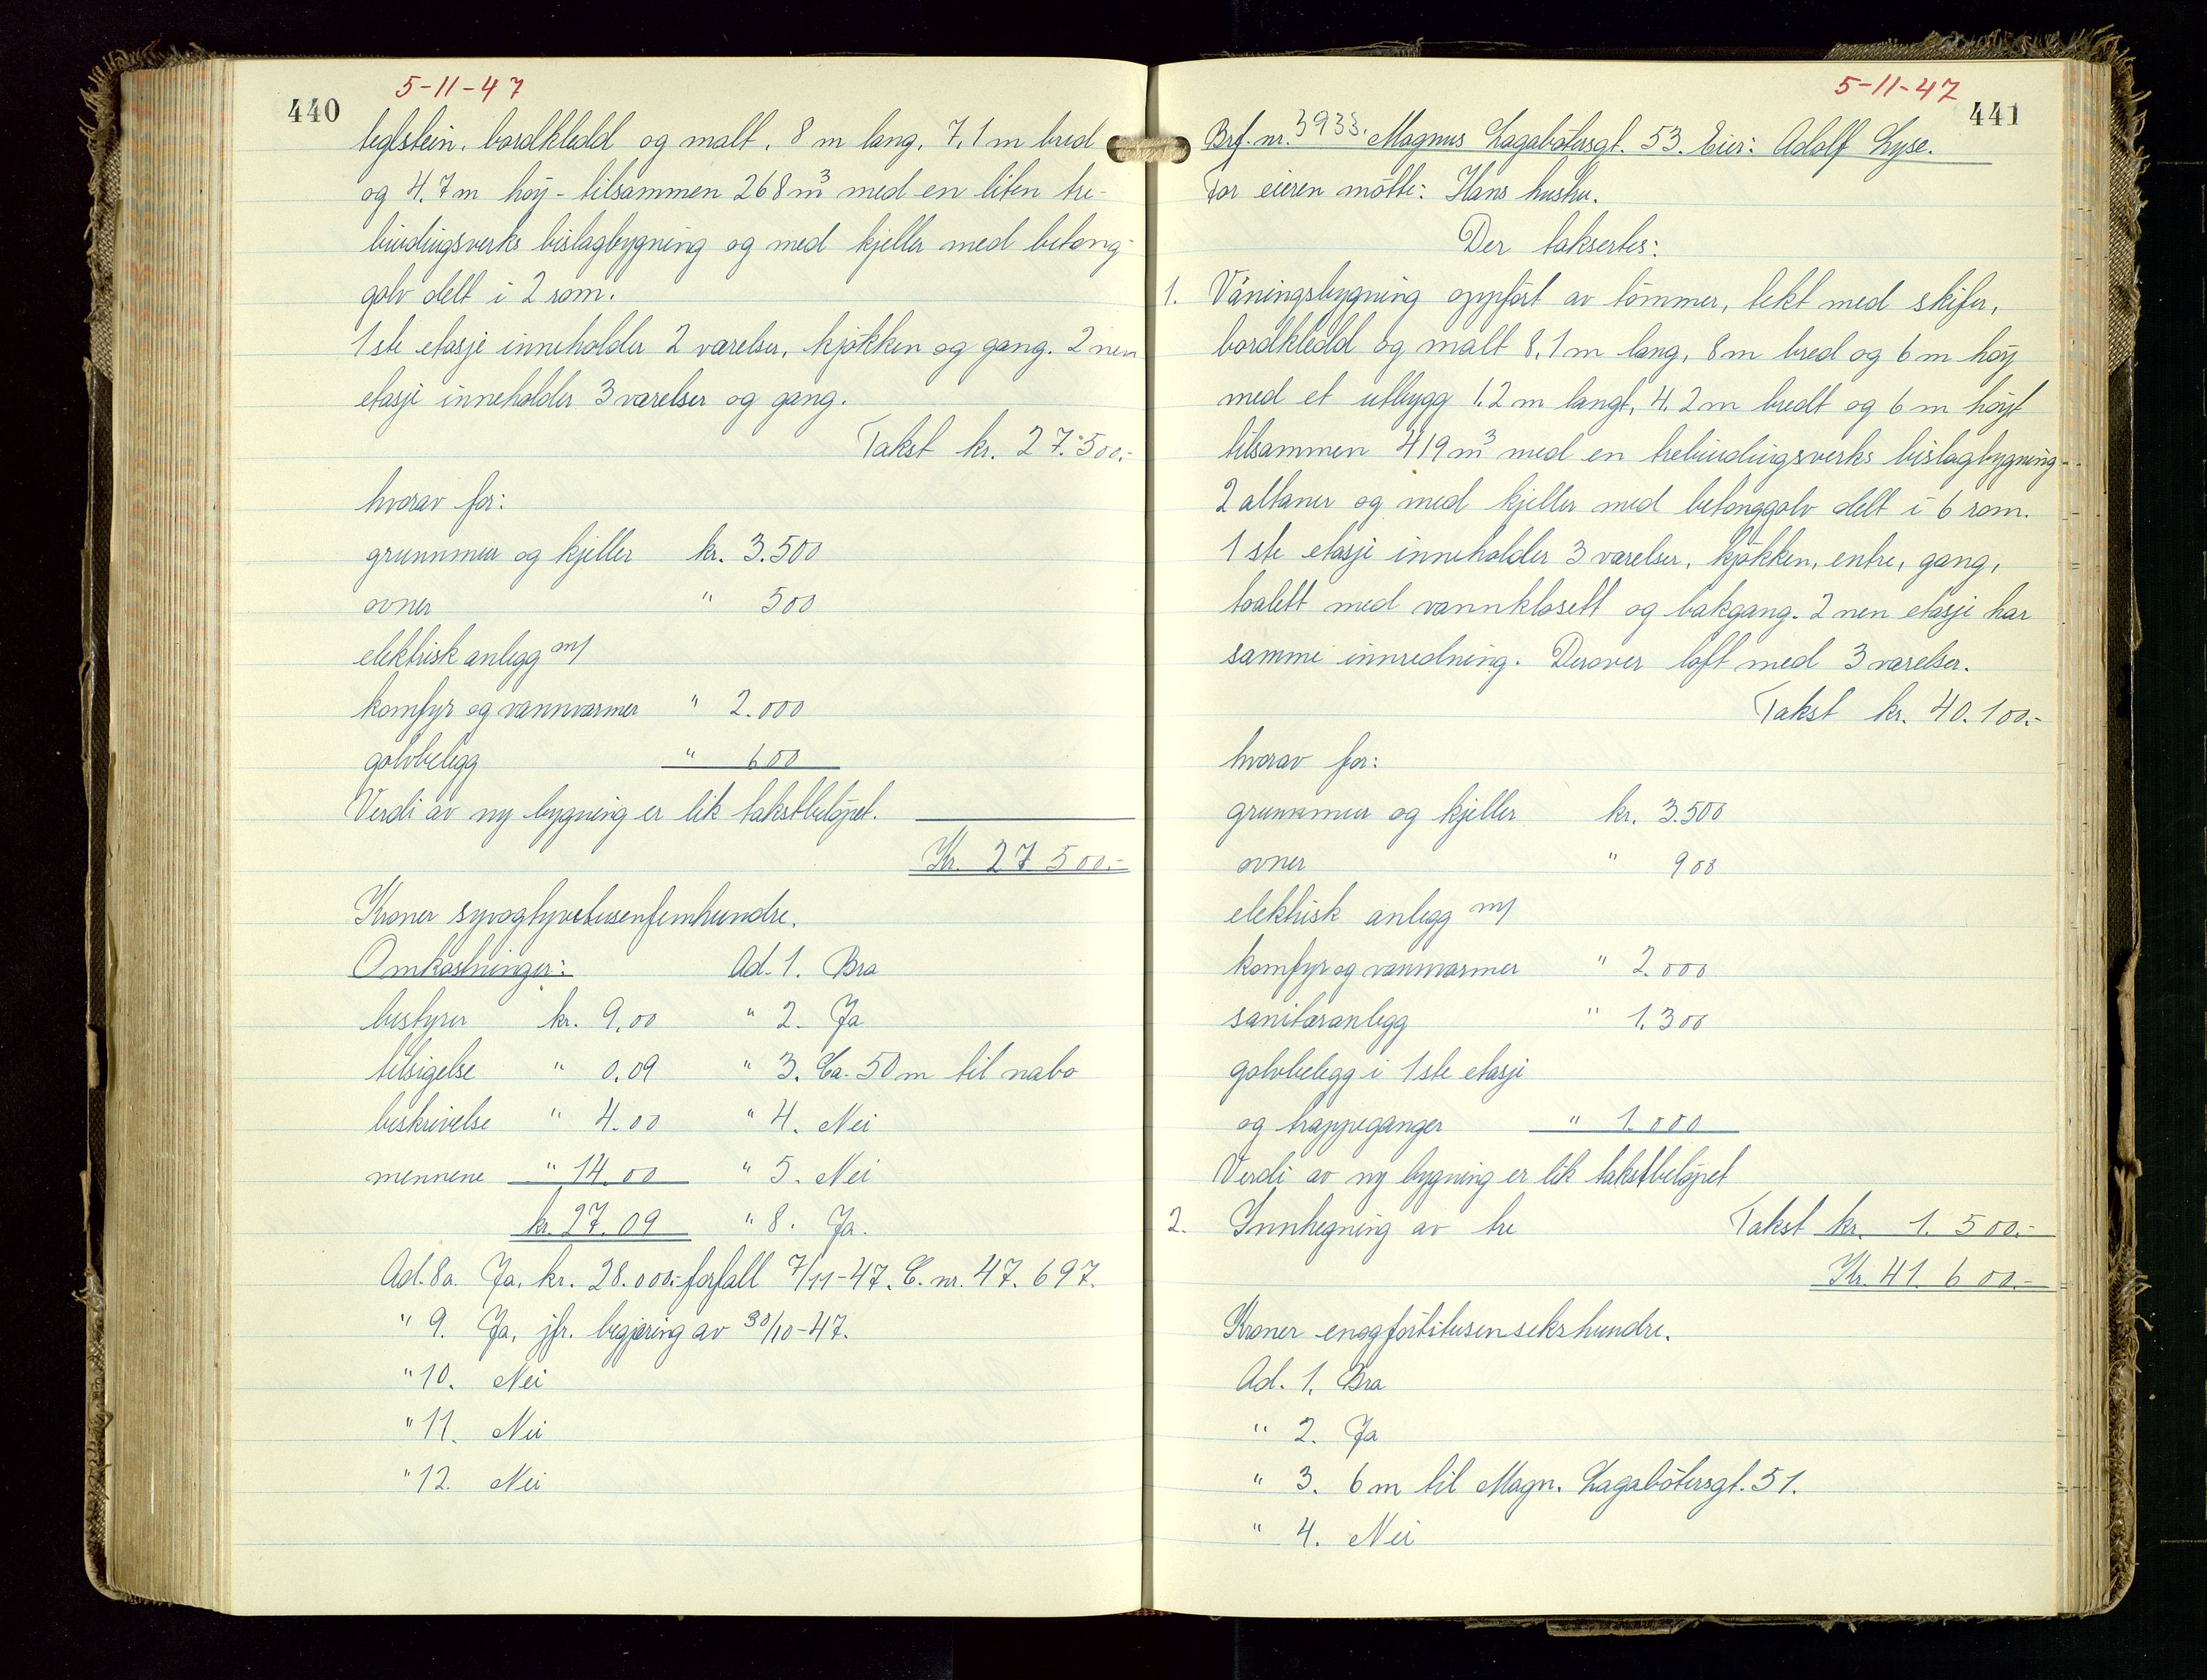 440
5-11-47
teglstein, bordkledd og malt, 8 m lang, 7,1 m bred
og 4,7 m høy - tilsammen 268 m³ med en liten tre-
bindingsverks bislagbygning og med kjeller med betong-
golv delt i 2 rom.
1ste etasje inneholder 2 værelser, kjøkken og gang. 2nen
etasje inneholder 3 værelser og gang.
Takst kr. 27.500.-
hvorav for:
grunnmur og kjeller kr. 3.500
ovner " 500
elektrisk anlegg m/
komfyr og vannvarmer " 2.000
golvbelegg " 600
Verdi av ny bygning er lik takstbeløpet.
Kr. 27 500.-
Kroner syvogtyvetusenfemhundre.
Omkostninger: Ad. 1. Bra
bestyrer kr. 9,00 " 2. Ja
tilsigelse " 0.09 " 3. Ca. 50 m til nabo
beskrivelse " 4.00 " 4. Nei
mennene " 14.00 " 5. Nei
kr. 27.09 " 8. Ja.
Ad. 8a. Ja. kr. 28.000.- forfall 7/11-47. C. nr. 47.697.
" 9. Ja, jfr. begjæring av 30/10-47.
" 10. Nei
" 11. Nei
" 12. Nei
5-11-47
441
Brf. nr. 3938. Magnus Lagabötersgt. 53. Eier: Adolf Lyse.
For eieren møtte: Hans hustru.
Der taksertes:
1. Våningsbygning oppført av tømmer, tekt med skifer,
bordkledd og malt 8,1 m lang, 8 m bred og 6 m høy
med et utbygg 1,2 m langt, 4,2 m bredt og 6 m høyt
tilsammen 419 m³ med en trebindingsverks bislagbygning -
2 altaner og med kjeller med betonggolv delt i 6 rom.
1ste etasje inneholder 3 værelser, kjøkken, entre, gang,
toalett med vannklosett og bakgang. 2nen etasje har
samme innredning. Derover loft med 3 værelser.
Takst kr. 40.100.-
hvorav for:
grunnmur og kjeller kr. 3.500
ovner " 900
elektrisk anlegg m/
komfyr og vannvarmer " 2.000
sanitæranlegg " 1.300
golvbelegg i 1ste etasje
og trappeganger " 1.000
Verdi av ny bygning er lik takstbeløpet
2. Innhegning av tre Takst kr. 1.500.-
Kr. 41 600.-
Kroner enogførtitusensekshundre.
Ad. 1. Bra
" 2. Ja
" 3. 6 m til Magn. Lagabötersgt. 51.
" 4. Nei